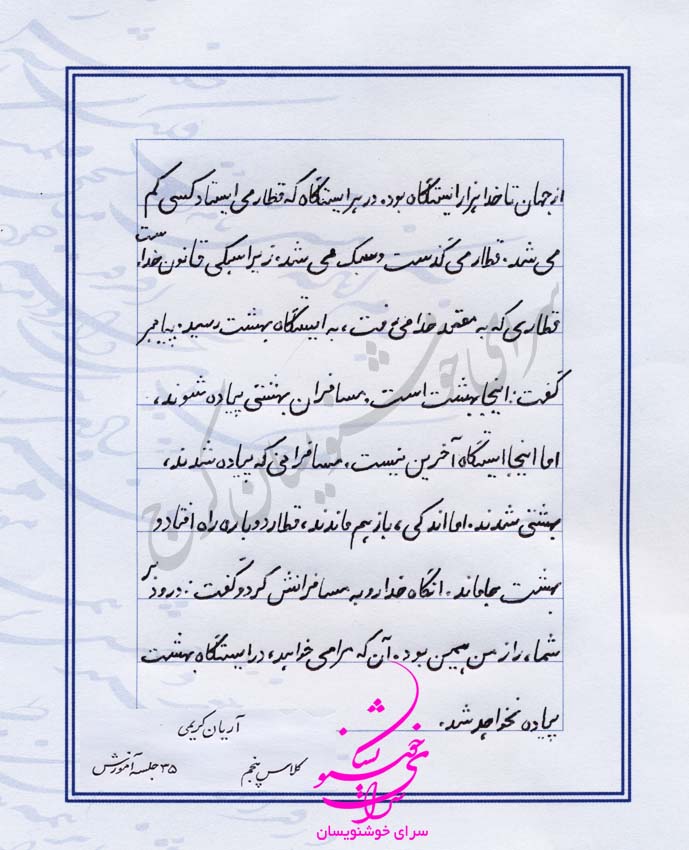 از جهان تا خدا هزار ایستگاه بود. در هر ایستگاه که قطار می ایستاد کسی کم
می شد. قطار می گذشت و سبک می شد. زیرا سبکی قانون خداست
قطاری که به مقصد خدا می رفت، به ایستگاه بهشت رسید. پیامبر
گفت: اینجا بهشت است. مسافران بهشتی پیاده شوند،
اما اینجا ایستگاه آخرین نیست. مسافرانی که پیاده شدند،
بهشتی شدند. اما اندکی، باز هم ماندند، قطار دوباره راه افتاد و
بهشت جا ماند. آنگاه خدا رو به مسافرانش کرد و گفت: درود بر
شما، راز من همین بود. آن که مرا می خواهد، در ایستگاه بهشت
پیاده نخواهد شد.
آریان کریمی
کلاس پنجم
۳۵ جلسه آموزش
سرای خوشنویسان
سرای خوشنویسان
سرای خوشنویسان کرج